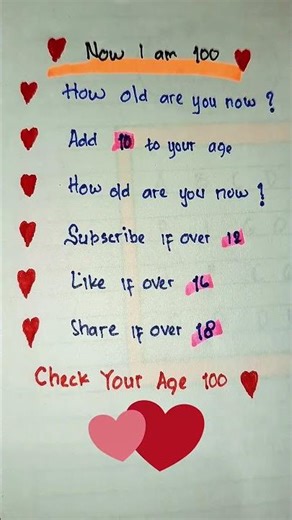 Now I am 100
How old are you now ?
Add 10 to your age
How old are you now !
Subscribe if over 12
Like if over 16
Share if over 18
Check Your Age 100